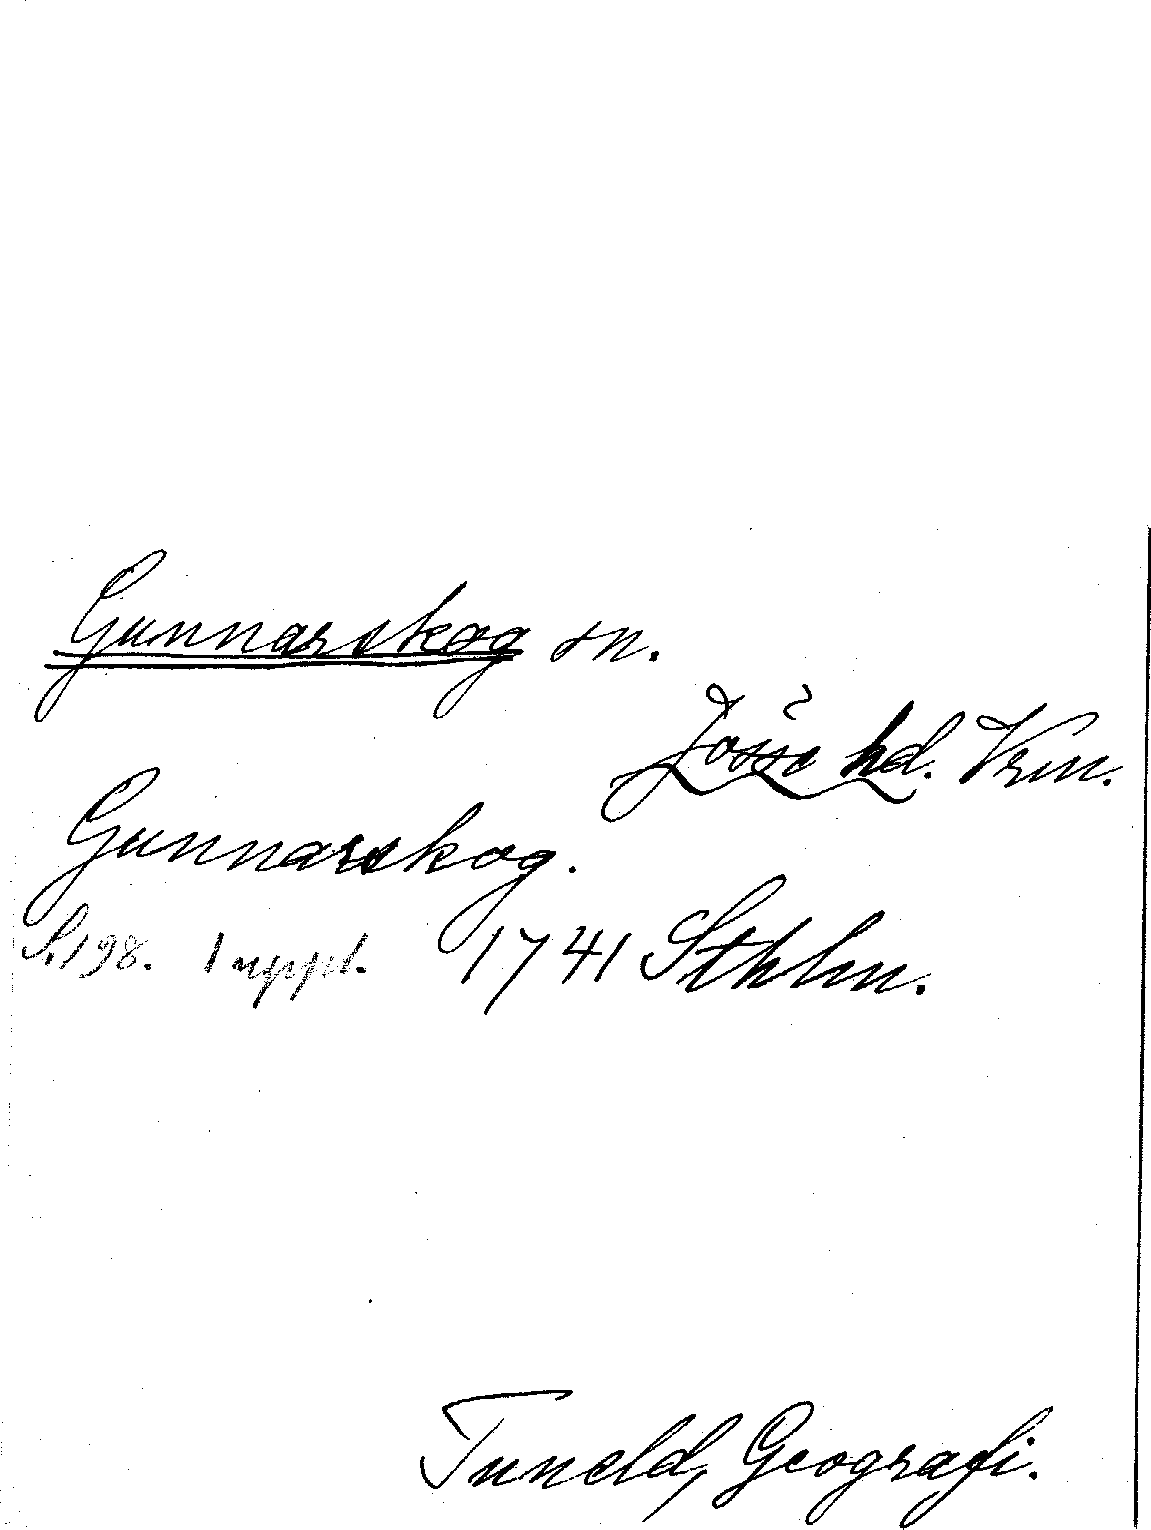 Gunnarskog sn.
Jösse hd. Vrm.
Gunnarskog.
S. 198. 1 uppl. 1741 Sthlm.
Tuneld, Geografi.